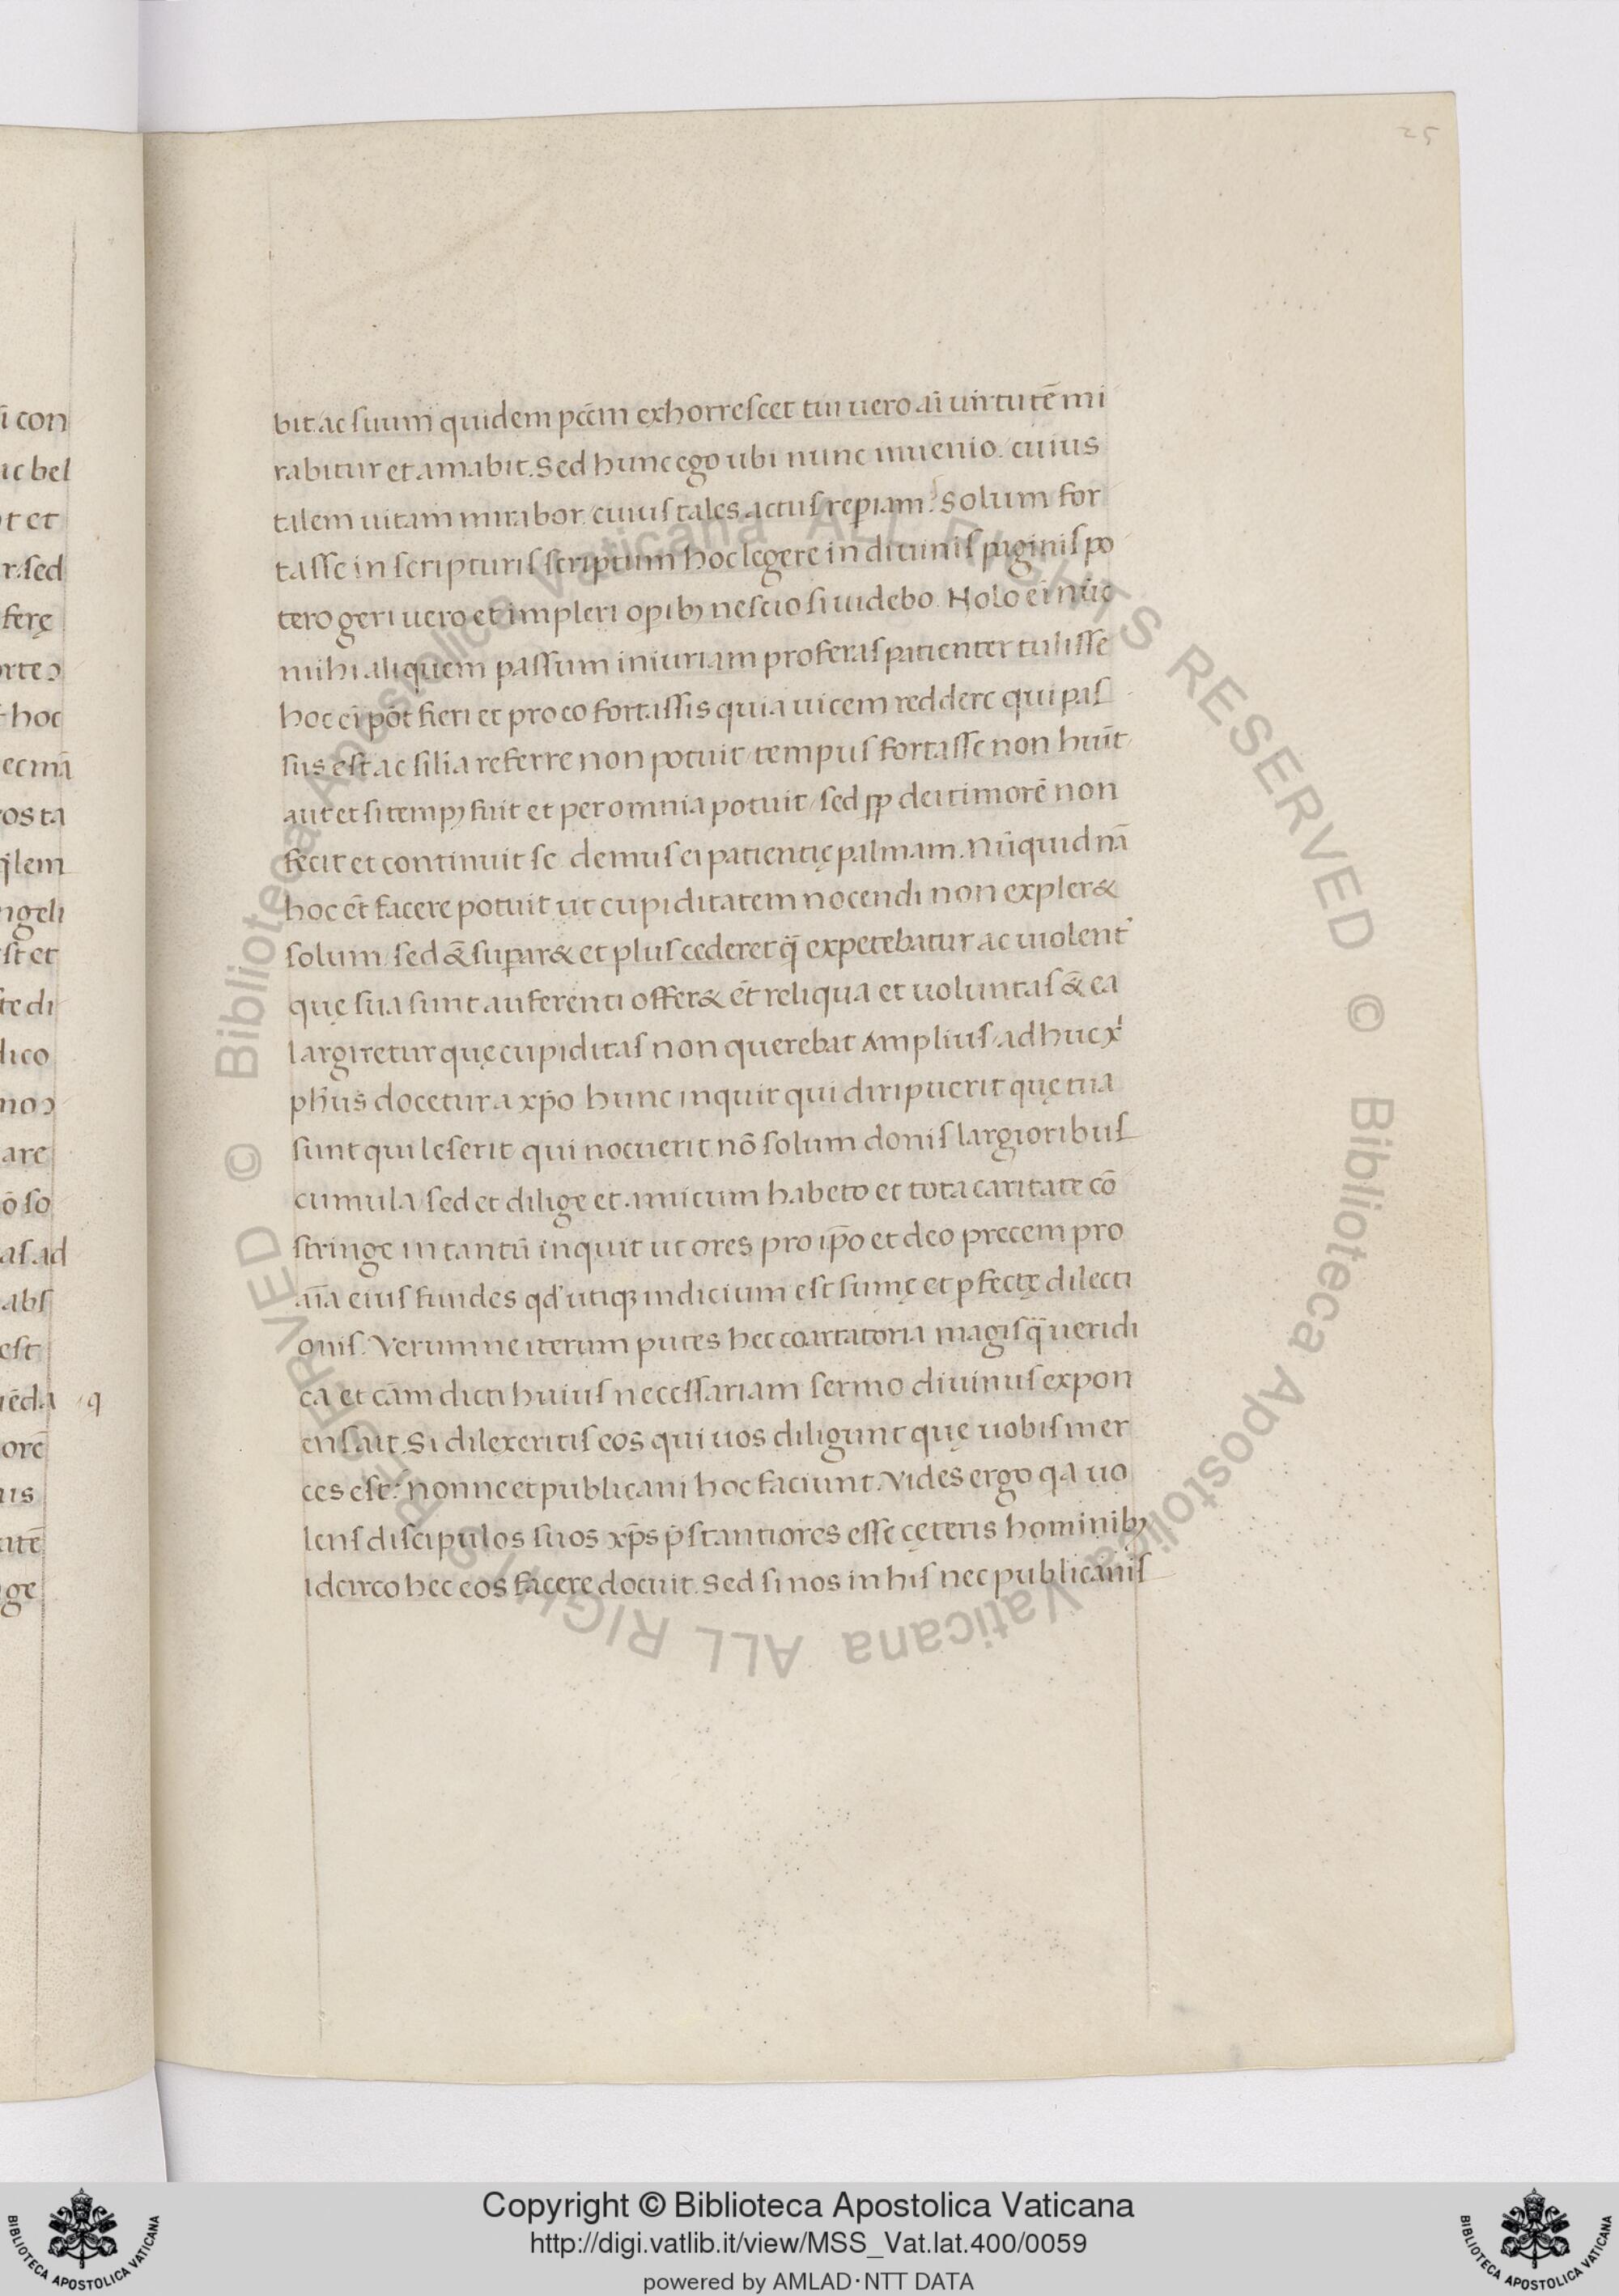 25
i con
ac bel
t et
r. sed
ferę
orteↄ
hoc
ecm̄
os ta
q̇lem
ngeli
st et
te di
dico
noↄ
are
ō so
as ad
abs
est
rēda q
orē
us
utē
ge
bit. ac suum quidem pcc̄m exhorrescet tui uero ai̅ uirtutē mi
rabitur et amabit. Sed hunc ego ubi nunc inuenio. cuius
talem uitam mirabor. cuius tales actus reperiam? Solum for
tasse in scripturis scriptum hoc legere in diuinis paginis po
tero geri uero et impleri opibꝫ nescio si uidebo. Nolo ei̅ nūc
mihi aliquem passum iniuriam proferas patienter tulisse
hoc ei̅ pōt fieri et pro eo fortassis quia uicem reddere qui pas
sus est ac silia referre non potuit / tempus fortasse non huīt
aut et si tempꝫ fuit et per omnia potuit / sed ꝓp dei timorē non
fecit et continuit se demus ei patientię palmam. Nūquid nā
hoc et̄ facere potuit ut cupiditatem nocendi non expler&
solum / sed &̄ supar& et plus cederet q̄ expetebatur ac uiolent͛
quę sua sunt auferenti offer& et̄ reliqua et uoluntas &̄ ea
largiretur quę cupiditas non querebat Amplius / adhuc x͛
ph̄us docetur a xp̄o hunc inquit qui diripuerit quę tua
sunt qui leserit qui nocuerit nō solum donis largioribus
cumula / sed et dilige et amicum habeto et tota caritate cō
stringe in tantū inquit ut ores pro ip̄o et deo precem pro
ai̅a eius fundes qd̓ utiqꝫ indicium est sumę et ꝑfectę dilecti
onis. Verum ne iterum putes hec coartatoria magis q̄ ueridi
ca et cām dicti huius necessariam sermo diuinus expon
ens ait. Si dilexeritis eos qui uos diligunt quę uobis mer
ces est? nonne et publicani hoc faciunt. Vides ergo qa uo
lens discipulos suos xp̄s p̄stantiores esse cęteris hominibꝫ
Idcirco hec eos facere docuit. Sed si nos in his nec publicanis
© Biblioteca Apostolica Vaticana ALL RIGHTS RESERVED © Biblioteca Apostolica Vaticana ALL RIGHTS RESERVED
BIBLIOTECA APOSTOLICA VATICANA
Copyright © Biblioteca Apostolica Vaticana
http://digi.vatlib.it/view/MSS_Vat.lat.400/0059
powered by AMLAD·NTT DATA
BIBLIOTECA APOSTOLICA VATICANA